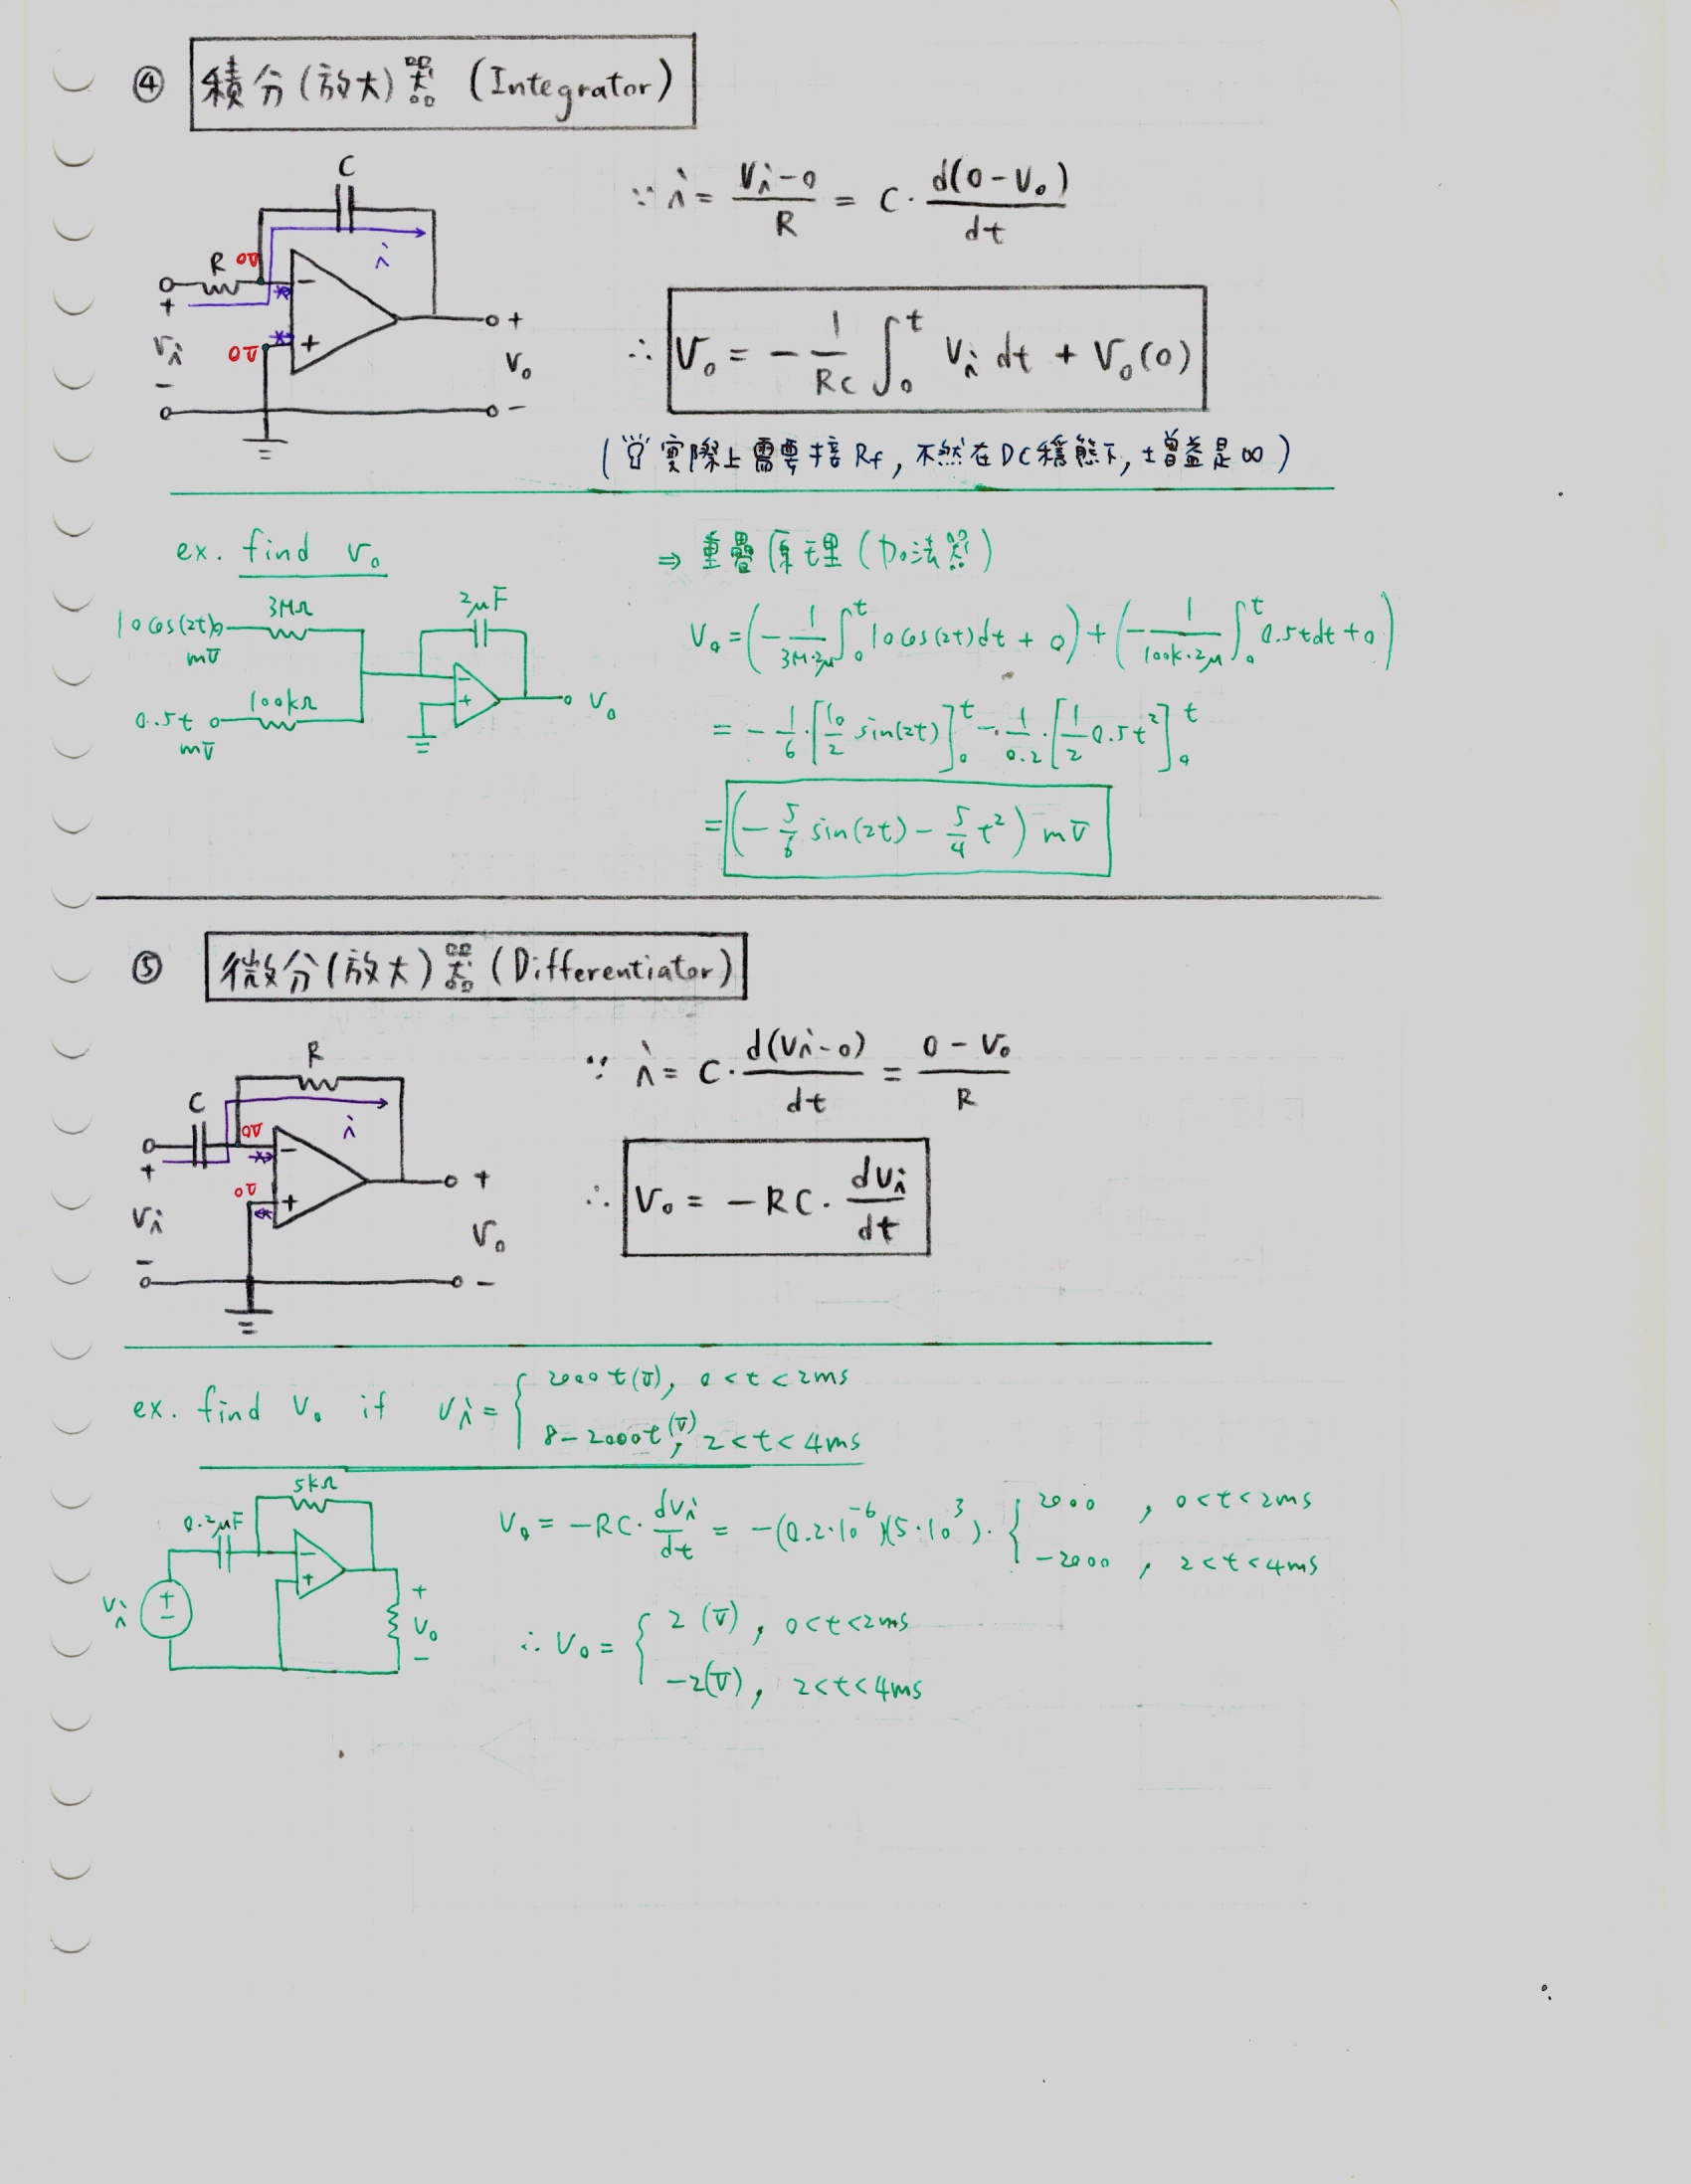 ④ 積分(放大)器 (Integrator)
C
R 0V
i
−
+
Vi
−
0V
+
+
Vo
−
∵ i = (Vi−0)/R = C · d(0−Vo)/dt
∴ Vo = −1/(RC) ∫₀ᵗ Vi dt + Vo(0)
實際上需要接 Rf, 不然在DC穩態下, 增益是∞)
ex. find vo
10cos(2t) mV
3MΩ
2μF
0.5t mV
100kΩ
−
+
Vo
⇒ 重疊原理 (加法器)
Vo = (−1/(3M·2μ) ∫₀ᵗ 10cos(2t)dt + 0) + (−1/(100k·2μ) ∫₀ᵗ 0.5tdt + 0)
= −1/6 · [10/2 sin(2t)]₀ᵗ − 1/0.2 · [1/2 0.5t²]₀ᵗ
= (−5/6 sin(2t) − 5/4 t²) mV
⑤ 微分(放大)器 (Differentiator)
R
C
0V
i
−
+
Vi
−
0V
+
+
Vo
−
∵ i = C · d(Vi−0)/dt = (0−Vo)/R
∴ Vo = −RC · dvi/dt
ex. find Vo if Vi = { 2000t(V), 0<t<2ms
8−2000t(V), 2<t<4ms
5kΩ
0.2μF
−
+
Vi
+
−
+
Vo
−
Vo = −RC · dvi/dt = −(0.2·10⁻⁶)(5·10³) · { 2000 , 0<t<2ms
−2000 , 2<t<4ms
∴ Vo = { 2 (V), 0<t<2ms
−2(V), 2<t<4ms